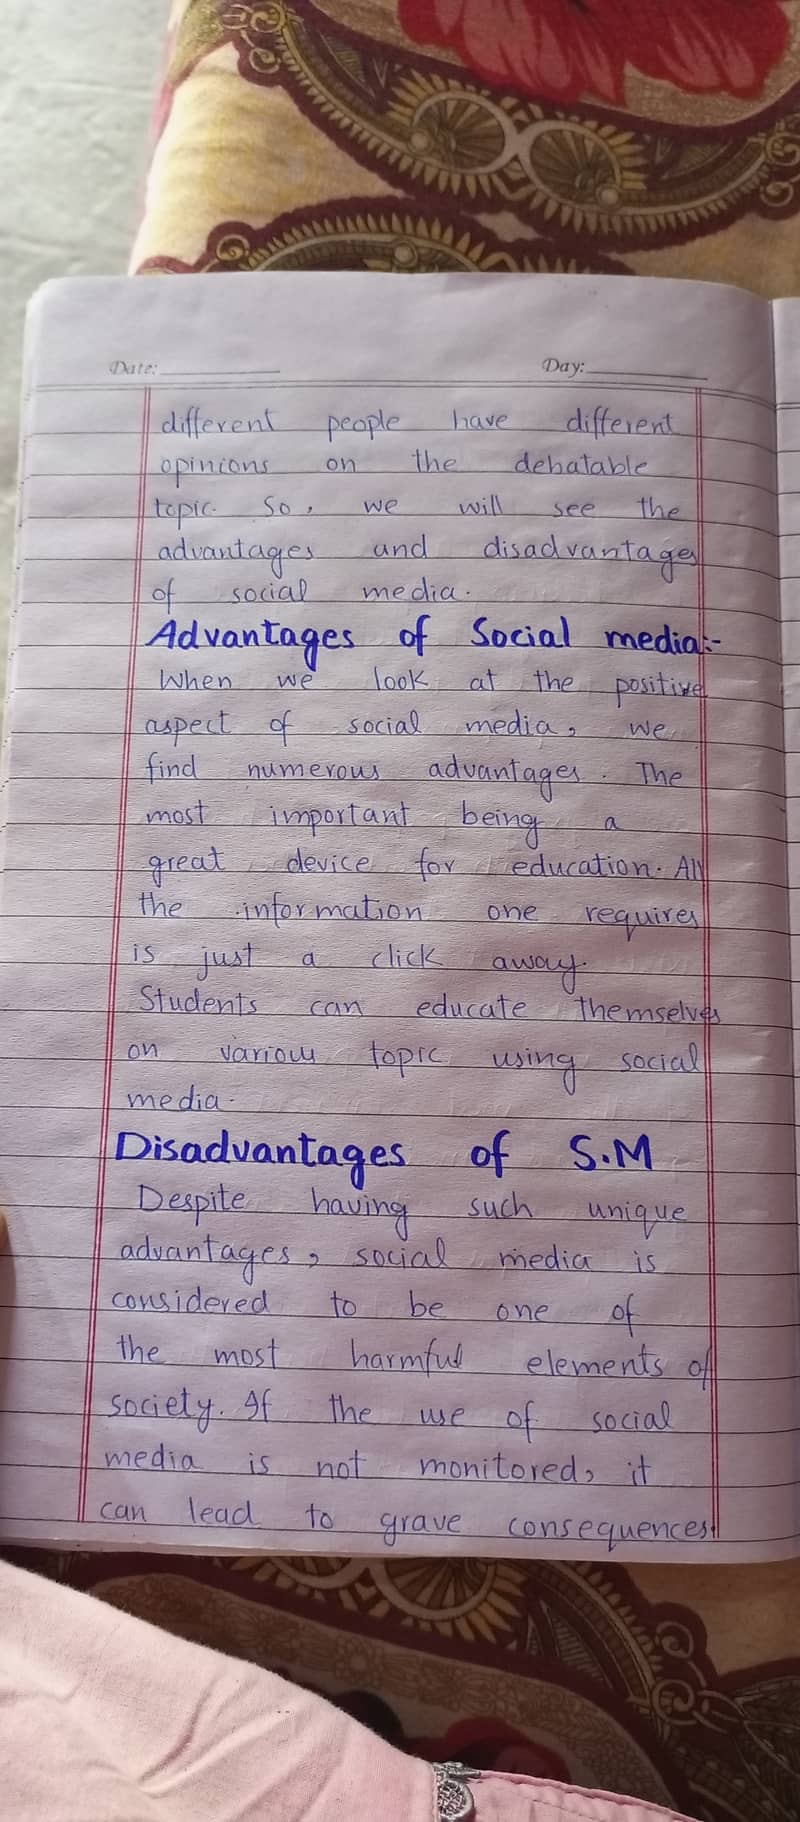 Date:
Day:
different people have different
opinions on the debatable
topic. So, we will see the
advantages and disadvantages
of social media.
Advantages of Social media:-
When we look at the positive
aspect of social media, we
find numerous advantages. The
most important being a
great device for education. All
the information one requires
is just a click away.
Students can educate themselves
on various topic using social
media.
Disadvantages of S.M
Despite having such unique
advantages, social media is
considered to be one of
the most harmful elements of
society. If the use of social
media is not monitored, it
can lead to grave consequences.